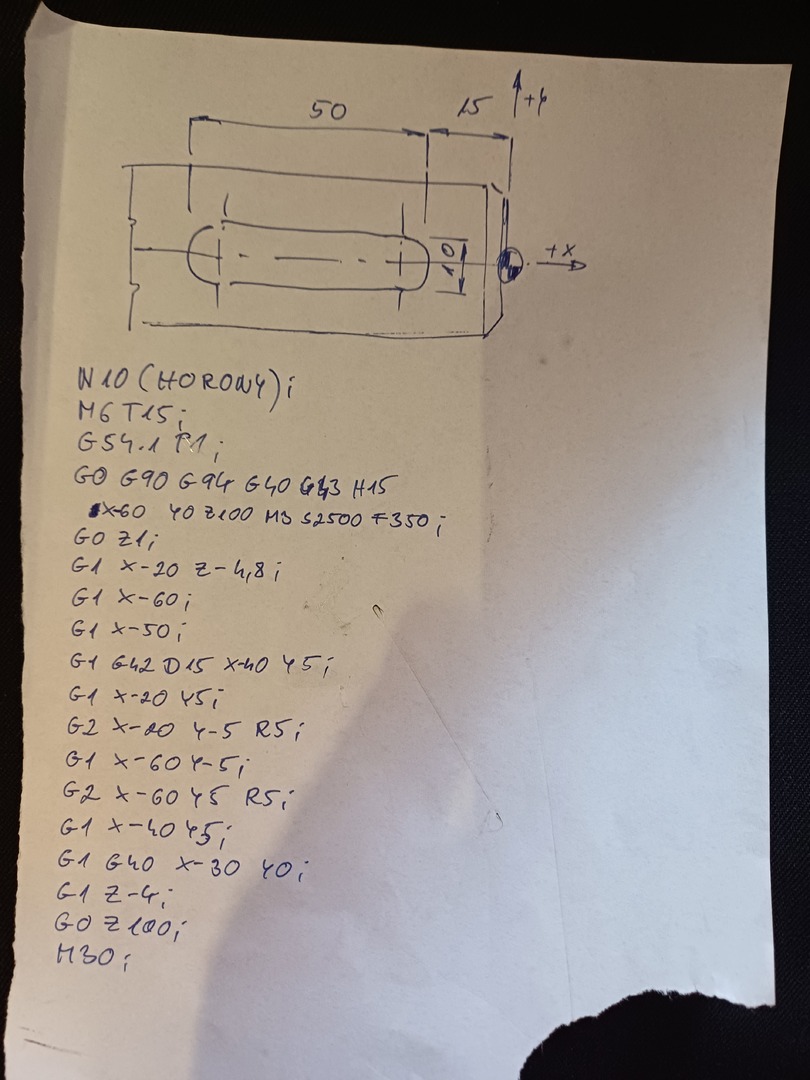 50 15 +y
10 +x
N10 (HORONY);
M6 T15;
G54.1 P1;
G0 G90 G94 G40 G43 H15
X-60 Y0 Z100 M3 S2500 F350;
G0 Z1;
G1 X-20 Z-4,8;
G1 X-60;
G1 X-50;
G1 G42 D15 X-40 Y5;
G1 X-20 Y5;
G2 X-20 Y-5 R5;
G1 X-60 Y-5;
G2 X-60 Y5 R5;
G1 X-40 Y5;
G1 G40 X-30 Y0;
G1 Z-4;
G0 Z100;
M30;